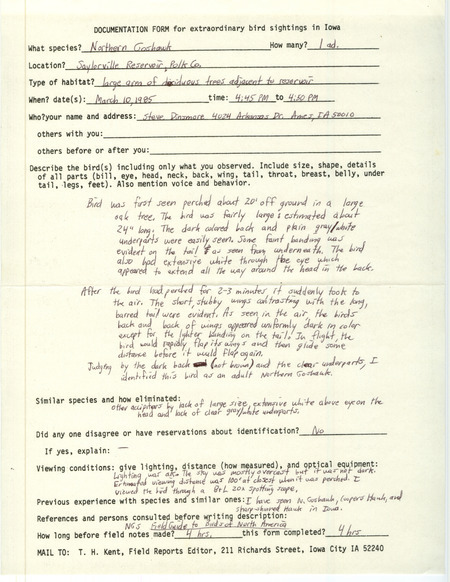 DOCUMENTATION FORM for extraordinary bird sightings in Iowa
What species? Northern Goshawk How many? 1 ad.
Location? Saylorville Reservoir, Polk Co.
Type of habitat? large arm of deciduous trees adjacent to reservoir
When? date(s): March 10, 1985 time: 4:45 PM to 4:50 PM
Who? your name and address: Steve Dinsmore 4024 Arkansas Dr. Ames, IA 50010
others with you:
others before or after you:
Describe the bird(s) including only what you observed. Include size, shape, details
of all parts (bill, eye, head, neck, back, wing, tail, throat, breast, belly, under
tail, legs, feet). Also mention voice and behavior.
Bird was first seen perched about 20' off ground in a large
oak tree. The bird was fairly large & estimated about
24" long. The dark colored back and plain gray/white
underparts were easily seen. Some faint banding was
evident on the tail as seen from underneath. The bird
also had extensive white through the eye which
appeared to extend all the way around the head in the back.
After the bird had perched for 2-3 minutes it suddenly took to
the air. The short, stubby wings contrasting with the long,
barred tail were evident. As seen in the air, the birds
back and back of wings appeared uniformly dark in color
except for the lighter banding on the tail. In flight, the
bird would rapidly flap its wings and then glide some
distance before it would flap again.
Judging by the dark back (not brown) and the clear underparts, I
identified this bird as an adult Northern Goshawk.
Similar species and how eliminated:
other accipiters by lack of large size, extensive white above eye on the
head and lack of clear gray/white underparts.
Did any one disagree or have reservations about identification? No
If yes, explain: —
Viewing conditions: give lighting, distance (how measured), and optical equipment:
Lighting was The sky was mostly overcast but it was not dark.
Estimated viewing distance was 100' at closest when it was perched. I
viewed the bird through a B+L 20x spotting scope.
Previous experience with species and similar ones: I have seen N. Goshawk, Coopers Hawk, and
sharp-shinned Hawk in Iowa.
References and persons consulted before writing description:
NGS Field Guide to Birds of North America
How long before field notes made? 4 hrs. this form completed? 4 hrs
MAIL TO: T. H. Kent, Field Reports Editor, 211 Richards Street, Iowa City IA 52240